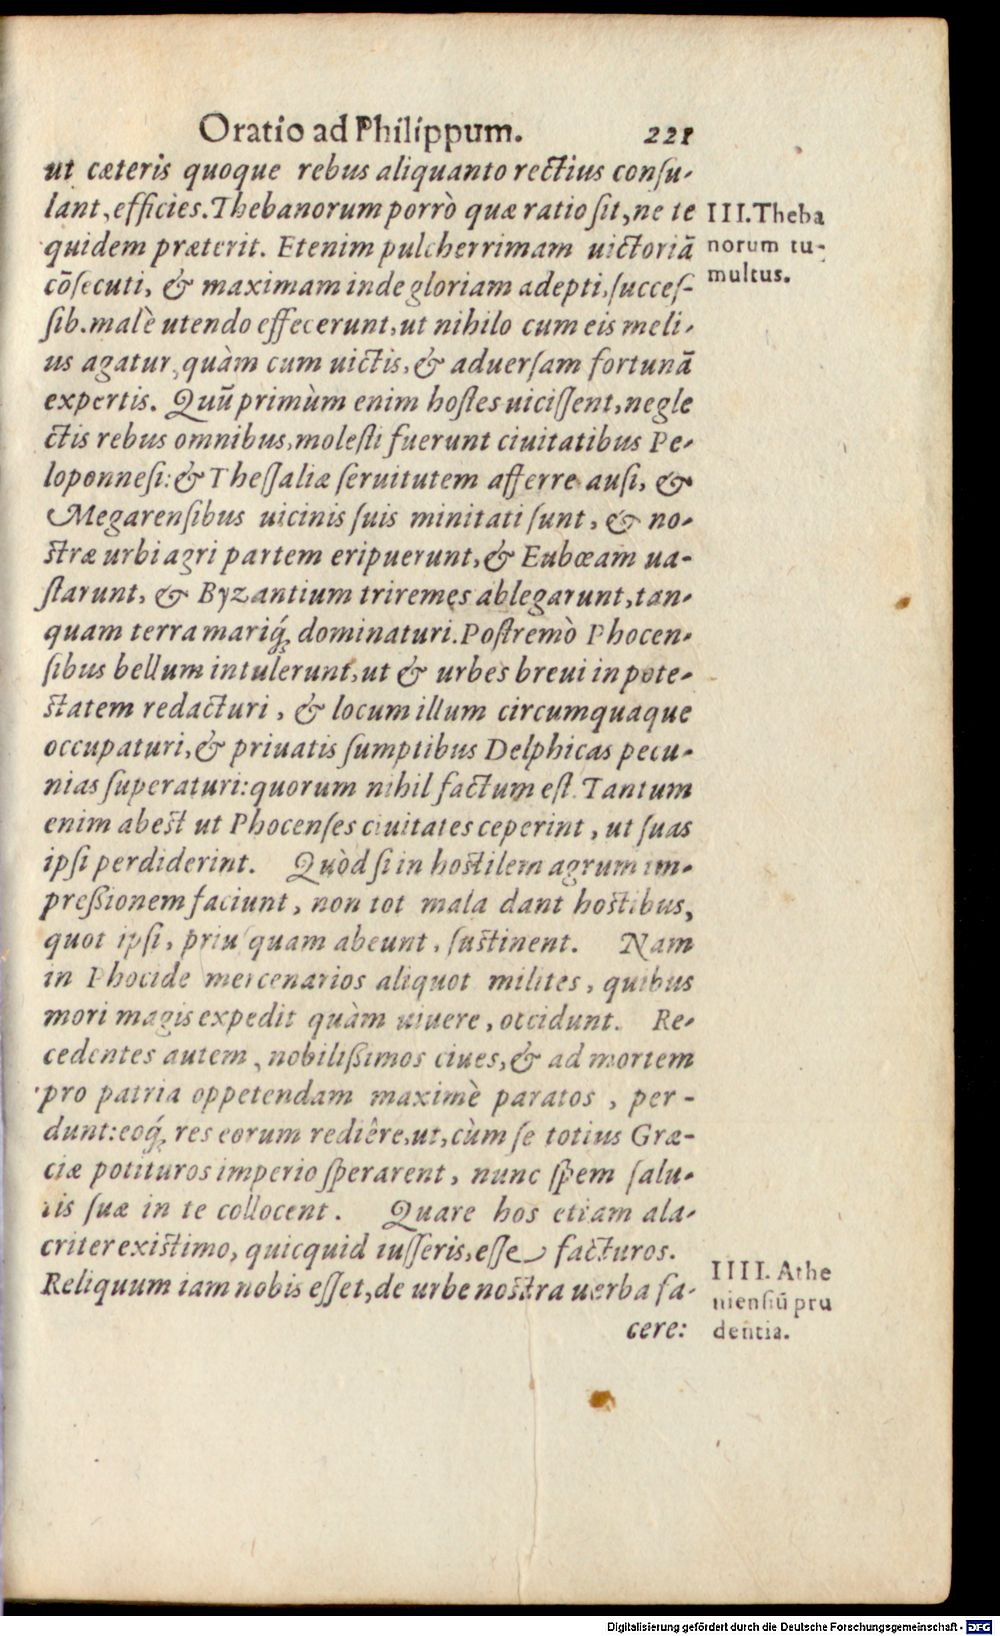 Oratio ad Philippum. 221
ut cæteris quoque rebus aliquanto rectius consu-
lant, efficies. Thebanorum porrò quæ ratio sit, ne te
III. Theba
quidem præterit. Etenim pulcherrimam uictoriā
norum tu-
cōsecuti, & maximam inde gloriam adepti, succes-
multus.
sib. malè utendo effecerunt, ut nihilo cum eis meli-
us agatur, quàm cum uictis, & aduersam fortunā
expertis. Quū primùm enim hostes uicissent, negle
ctis rebus omnibus, molesti fuerunt ciuitatibus Pe-
loponnesi: & Thessaliæ seruitutem afferre ausi, &
Megarensibus uicinis suis minitati sunt, & no-
stræ urbi agri partem eripuerunt, & Eubœam ua-
starunt, & Byzantium triremes ablegarunt, tan-
quam terra mariq́; dominaturi. Postremò Phocen-
sibus bellum intulerunt, ut & urbes breui in pote-
statem redacturi, & locum illum circumquaque
occupaturi, & priuatis sumptibus Delphicas pecu-
nias superaturi: quorum nihil factum est. Tantum
enim abest ut Phocenses ciuitates ceperint, ut suas
ipsi perdiderint. Quòd si in hostilem agrum im-
preßionem faciunt, non tot mala dant hostibus,
quot ipsi, priusquam abeunt, sustinent. Nam
in Phocide mercenarios aliquot milites, quibus
mori magis expedit quàm uiuere, occidunt. Re-
cedentes autem, nobilißimos ciues, & ad mortem
pro patria oppetendam maximè paratos, per-
dunt: eoq́; res eorum rediêre, ut, cùm se totius Græ-
ciæ potituros imperio sperarent, nunc spem salu-
tis suæ in te collocent. Quare hos etiam ala-
criter existimo, quicquid iusseris, esse facturos.
Reliquum iam nobis esset, de urbe nostra uerba fa-
cere:
IIII. Athe
niensiū pru
dentia.
Digitalisierung gefördert durch die Deutsche Forschungsgemeinschaft - DFG